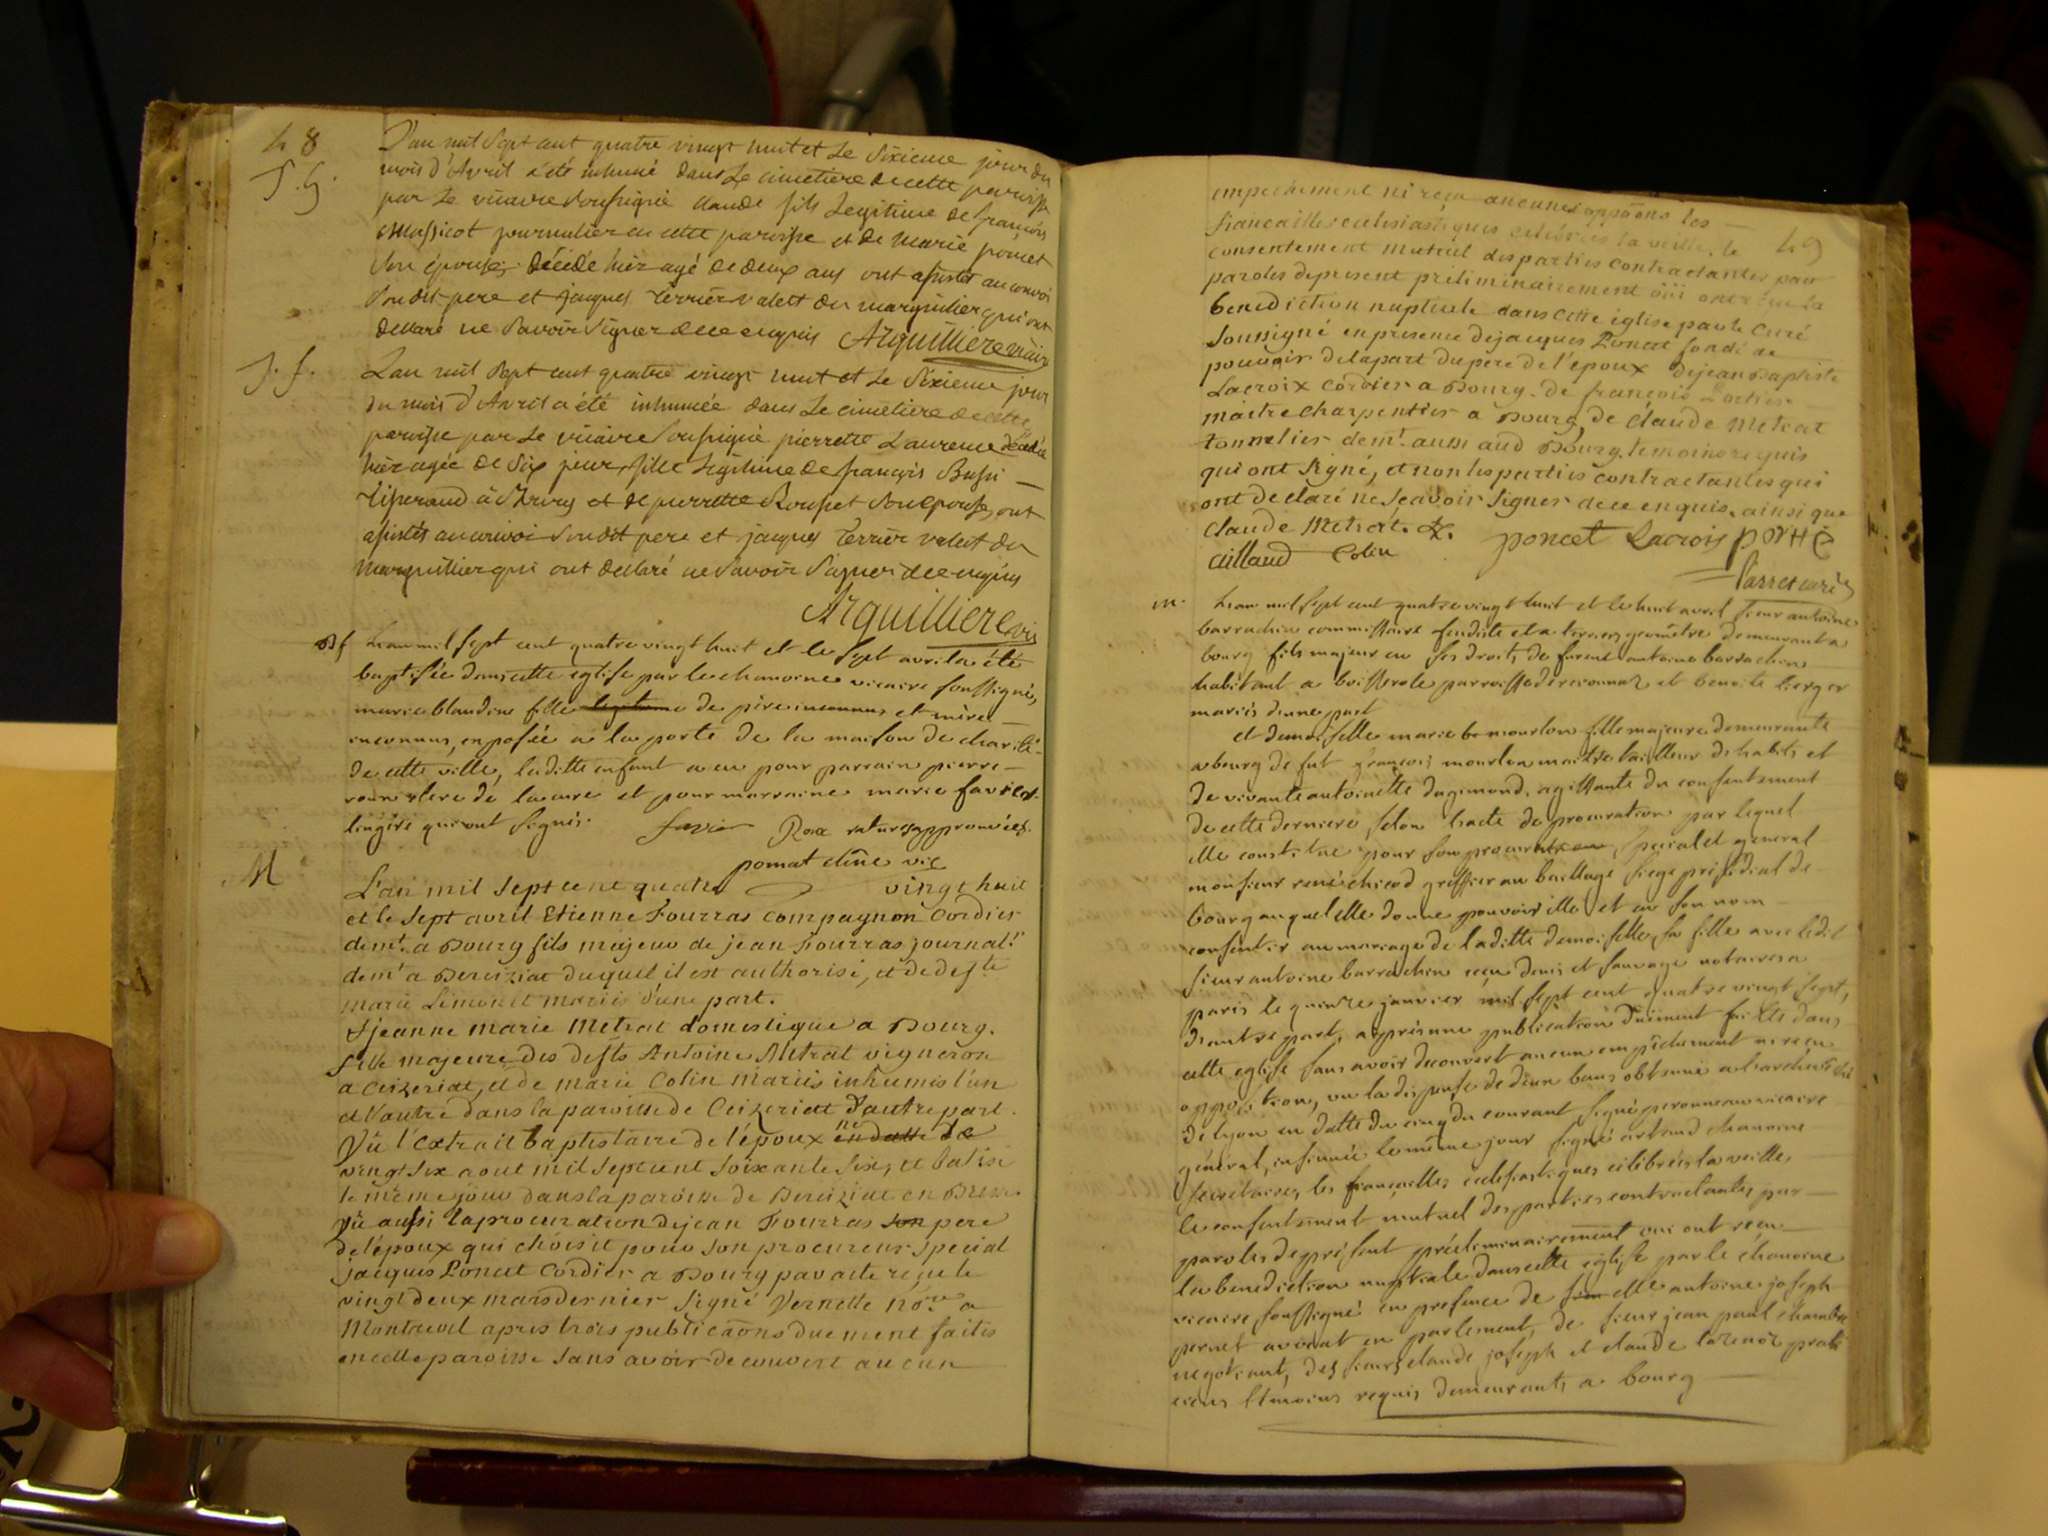 48
L'an mil Sept cent quatre vingt huit et Le Sixieme jour du
S.G. mois d'Avril a été inhumé dans Le cimetiere de cette paroisse
par Le vicaire Soussigné Claude fils Legitime de françois
Massicot journalier en cette paroisse et de Marie poncet
Son épouse, décédé hièr agé de deux ans ont assistés au convoi
Son dit pere et Jacques Terrier valet du marguillier qui ont
déclaré ne Savoir Signer de ce enquis Arguilliere vicaire
L'an mil Sept cent quatre vingt huit et Le Sixieme jour
du mois d'Avril a été inhumée dans Le cimetiere de cette
paroisse par Le vicaire Soussigné pierrette Laurence décédée
hièr agée de Six jours, fille Legitime de françois Bussi
et de pierrette Rousset Son epouse, ont
assistés au convoi Son dit pere et jacques Terrier valet du
Marguillier qui ont déclaré ne Savoir Signer de ce enquis
Arguilliere vic
Bf L'an mil sept cent quatre vingt huit et le sept avril a été
baptisée dans cette eglise par le chanoine vicaire soussigné,
marie blandine fille legitime de père inconnus et mère
inconnus, exposée a la porte de la maison de charité
de cette ville, laditte enfant a eu pour parrain pierre
roux clerc de la cure et pour marraine marie favier
lingère qui ont signés. favier Roux ratures approuvées.
pomat chne vic
M L'an mil sept cent quatre vingt huit
et le sept avril Etienne Fourras compagnon Cordier
demt. a Bourg fils majeur de jean Fourras journal.er
demt a Bereiziat duquel il est authorisé, et de defte
marie Limonet mariés d'une part.
& jeanne marie Metral domestique a Bourg.
fille majeure des defts Antoine Metral vigneron
a Ceizeriat, et de marie Colin mariés inhumés l'un
et l'autre dans la paroisse de Ceizeriat d'autre part.
Vû l'extrait baptistaire de l'époux né en datte de
vingt six aout mil sept cent soixante six, et batisé
le même jour dans la paroisse de Bereiziat en Bresse
vû aussi la procuration de jean Fourras son pere
de l'époux qui choisit pour son procureur special
jacques Poncet Cordier a Bourg par acte reçu le
vingt deux mars dernier signé Vernette nore a
Montrevel apres trois publicaons duement faites
en cette paroisse sans avoir decouvert aucun
49
empechement ni reçu aucunes oppoons les
fiancailles eclesiastiques celebrées la veille, le
consentement mutuel des parties contractantes par
paroles de present préliminairement oüi ont reçu la
benediction nuptiale dans cette église par le Curé
soussigné en presence de jacques Poncet fondé de
pouvoir de la part du pere de l'époux de jean Baptiste
Lacroix cordier a Bourg. de françois Portier
maitre charpentier a Bourg, de Claude Metrat
tonnelier demt. aussi aud Bourg, temoins requis
qui ont signé, et non les parties contractantes qui
ont declaré ne scavoir signer de ce enquis, ainsi que
Claude Metrat. &. poncet Lacroix portié
Cullaud Colin
Parret curé
m. L'an mil sept cent quatre vingt huit et le huit avril sieur antoine
barrachin commissaire feudiste et a terriers, geomêtre demeurant a
bourg fils majeur en ses droits de furent antoine barrachin
habitant a boisserole parroisse de reconnaz et benoite berger
mariés d'une part
et demoiselle marie be mourlon fille majeure demeurante
a bourg de fut françois mourlon maitre tailleur d'habits et
de vivante antoinette dugimond, agissante du consentement
de cette derniere, selon l'acte de procuration par lequel
elle constitue pour son procureur special et general
monsieur rené chicod greffier au baillage siege présidial de
bourg auquel elle donne pouvoir elle et en son nom
consentir au mariage de laditte demoiselle sa fille avec ledit
sieur antoine barrachin reçu denis et sauvage notaires a
paris le quinze janvier mil sept cent quatre vingt sept,
d'autre part, après une publication duëment faitte dans
cette eglise sans avoir decouvert aucun empêchement ni reçu
opposition, vu la dispense de deux bans obtenue a l'archevêché
de lyon en datte du cinq du courant signé peronneau vicaire
général, insinuée le même jour signé artaud chanoine
secretaire, les françailles ecclesiastiques célébrées la veille,
le consentement mutuel des parties contractantes par
paroles de présent préliminairement oui ont reçu
la bénédiction nuptiale dans cette eglise par le chanoine
vicaire soussigné en présence de antoine joseph
pernet avocat en parlement, de sieur jean paul chambre
negotiant, des sieurs claude joseph et claude prati
ciens temoins requis demeurants a bourg